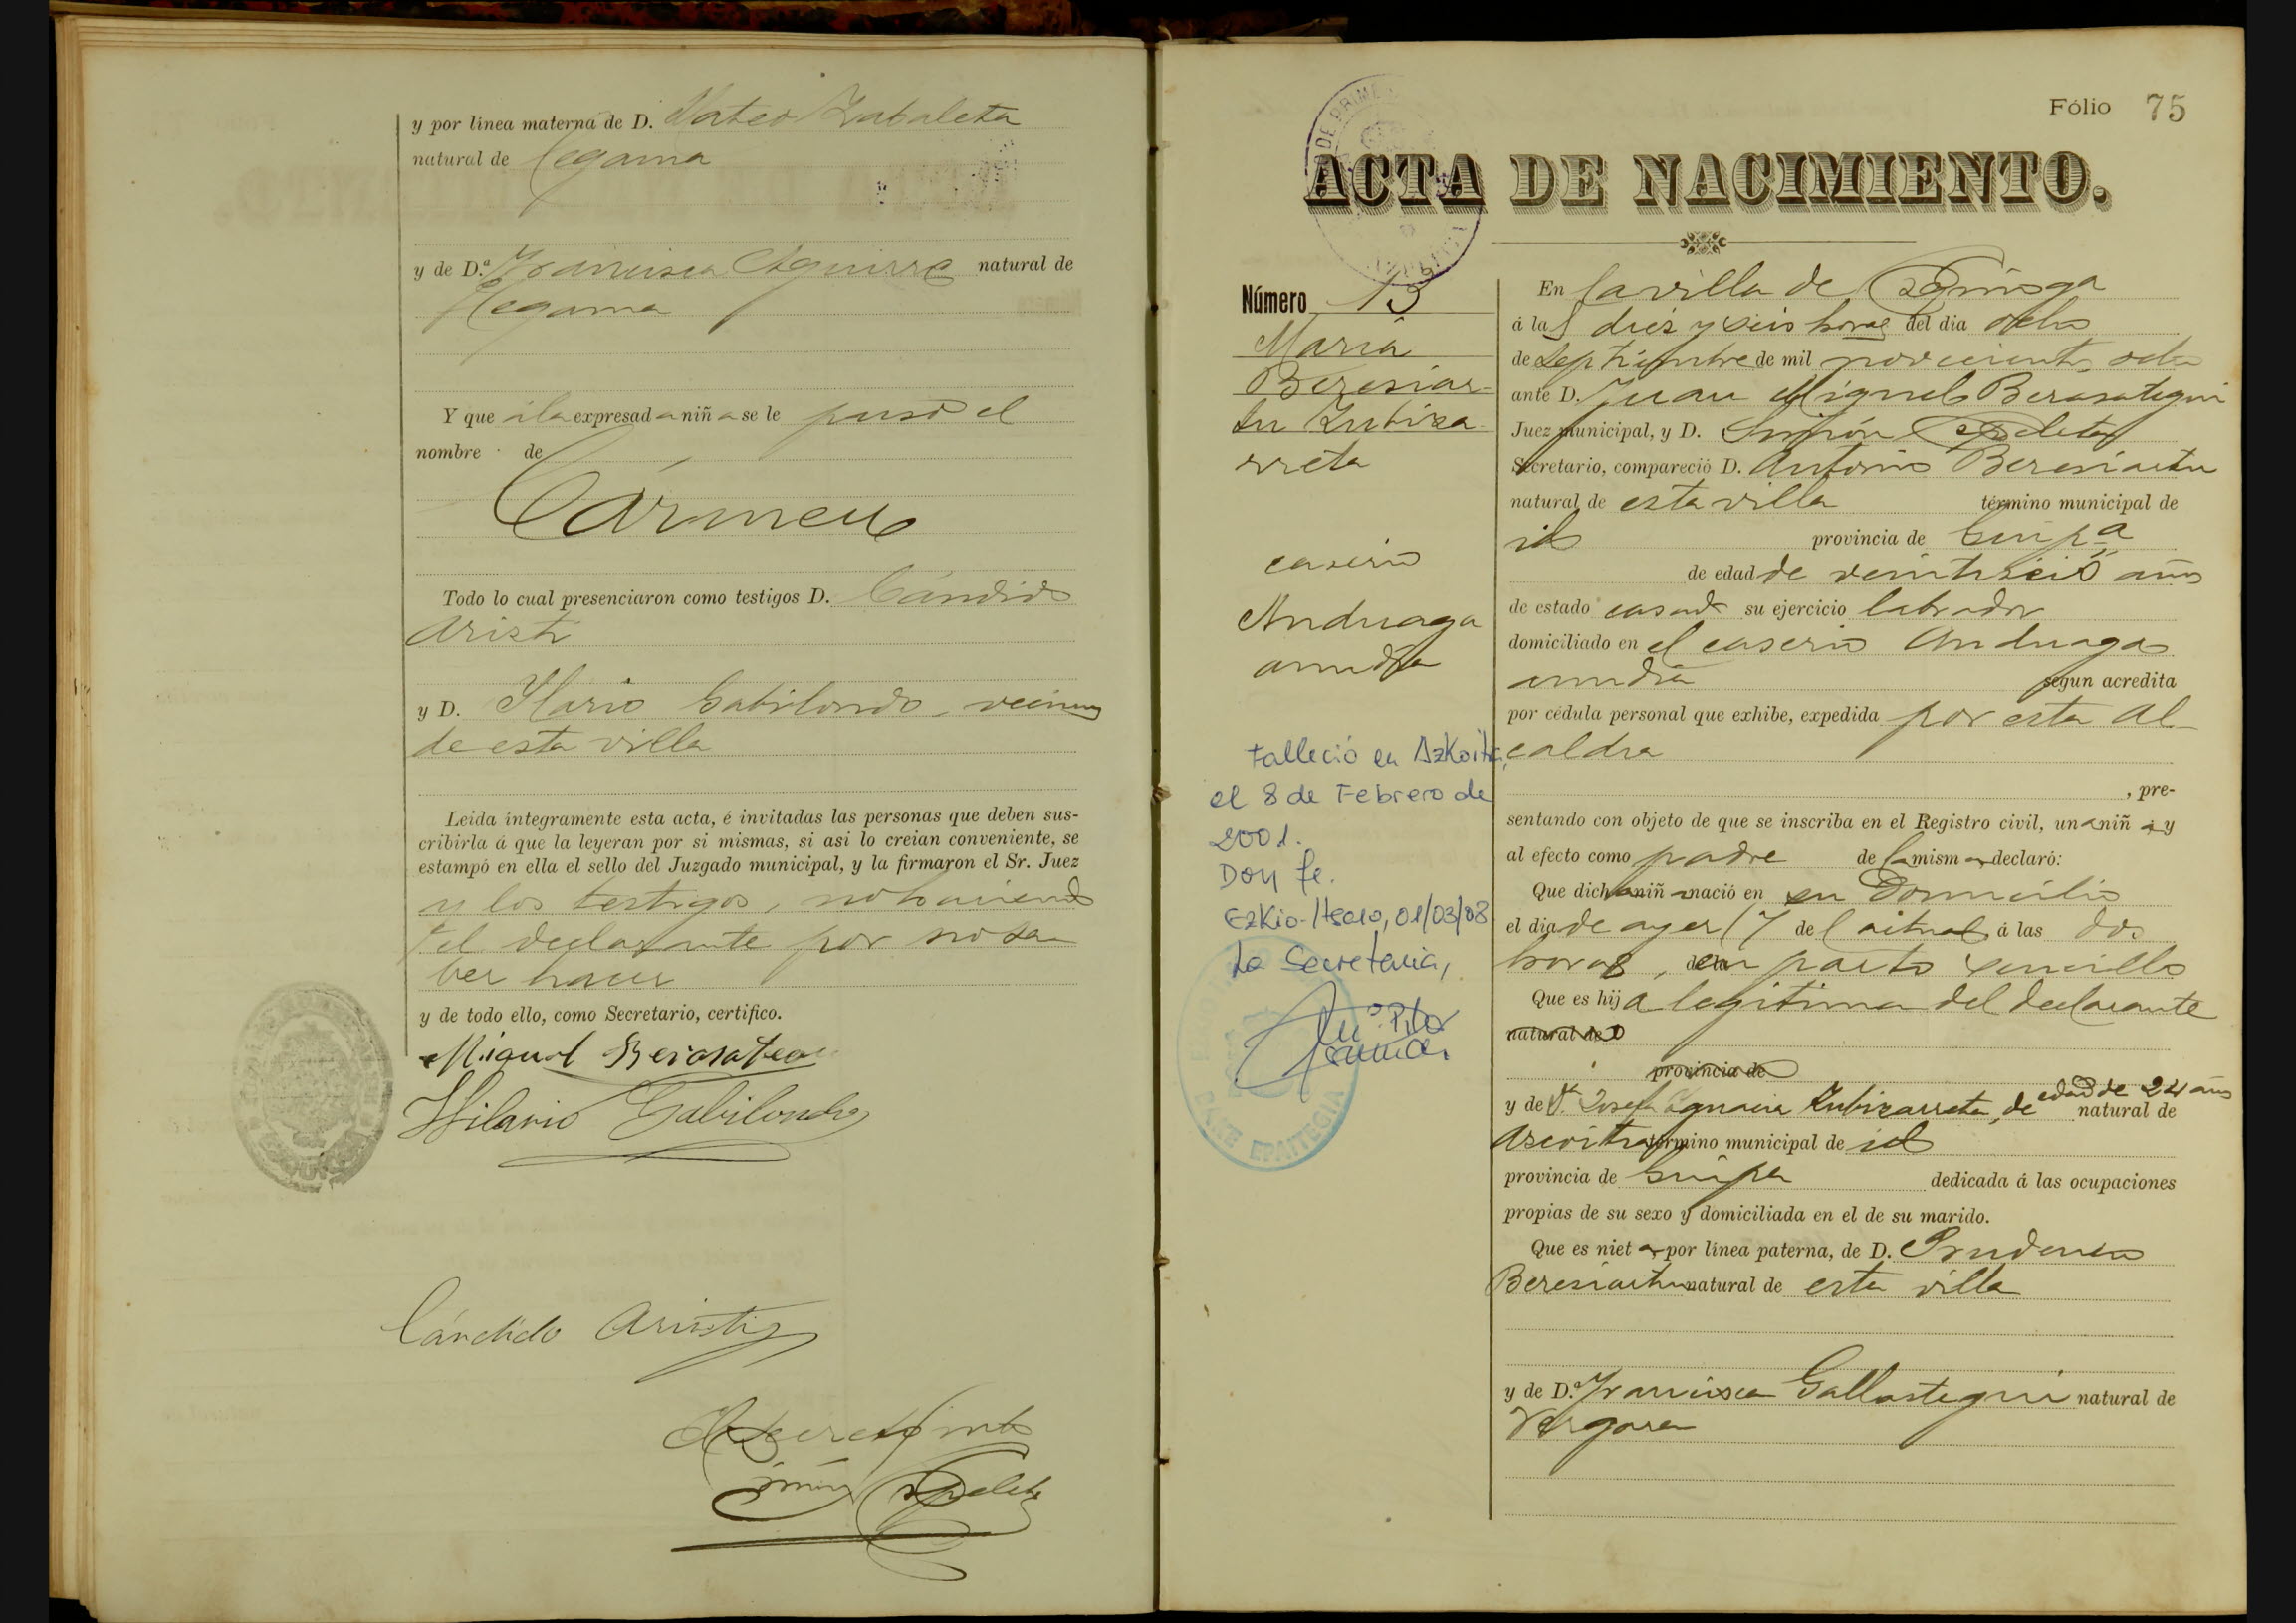 y por línea materna de D. Mateo Zabaleta
natural de Cegama
y de D.ª Francisca Aguirre natural de
Cegama
Y que á la expresada niña se le puso el
nombre de
Cármen
Todo lo cual presenciaron como testigos D. Cándido
Aristi
y D. Ylario Gabilondo, vecinos
de esta villa
Leida íntegramente esta acta, é invitadas las personas que deben sus-
cribirla á que la leyeran por si mismas, si asi lo creian conveniente, se
estampó en ella el sello del Juzgado municipal, y la firmaron el Sr. Juez
y los testigos, no haciendo
el declarante por no sa
ber hacer
y de todo ello, como Secretario, certifico.
Miguel Berasategui
Hilario Gabilondo
Cándido Aristi
Simón
Fólio 75
ACTA DE NACIMIENTO.
Número 13
María
Beresiar-
tu Zubiza-
rreta
caserio
Anduaga
aundia
Falleció en Azkoitia,
el 8 de Febrero de
2001.
Doy fe.
Ezkio-Itsaso, 01/03/08
La Secretaria,
BAKE EPAITEGIA
En la villa de Ezquioga
á las diez y seis horas del dia ocho
de Septiembre de mil novecientos ocho
ante D. Juan Miguel Berasategui
Juez municipal, y D. Simón
Secretario, compareció D. Antonio Beresiartu
natural de esta villa término municipal de
id provincia de Guip.a
de edad de veintiseis años
de estado casado su ejercicio labrador
domiciliado en el caserio Anduaga
aundia segun acredita
por cédula personal que exhibe, expedida por esta Al-
caldia
, pre-
sentando con objeto de que se inscriba en el Registro civil, una niña y
al efecto como padre de la misma declaró:
Que dicha niña nació en su domicilio
el dia de ayer (7 del actual á las dos
horas, en parto sencillo
Que es hija legitima del declarante
natural de
provincia de
y de D.ª Josefa Ignacia Zubizarreta, de edad de 24 años natural de
Azcoitia término municipal de id
provincia de Guipa dedicada á las ocupaciones
propias de su sexo y domiciliada en el de su marido.
Que es nieta por línea paterna, de D. Prudencio
Beresiartu natural de esta villa
y de D.ª Francisca Gallastegui natural de
Vergara